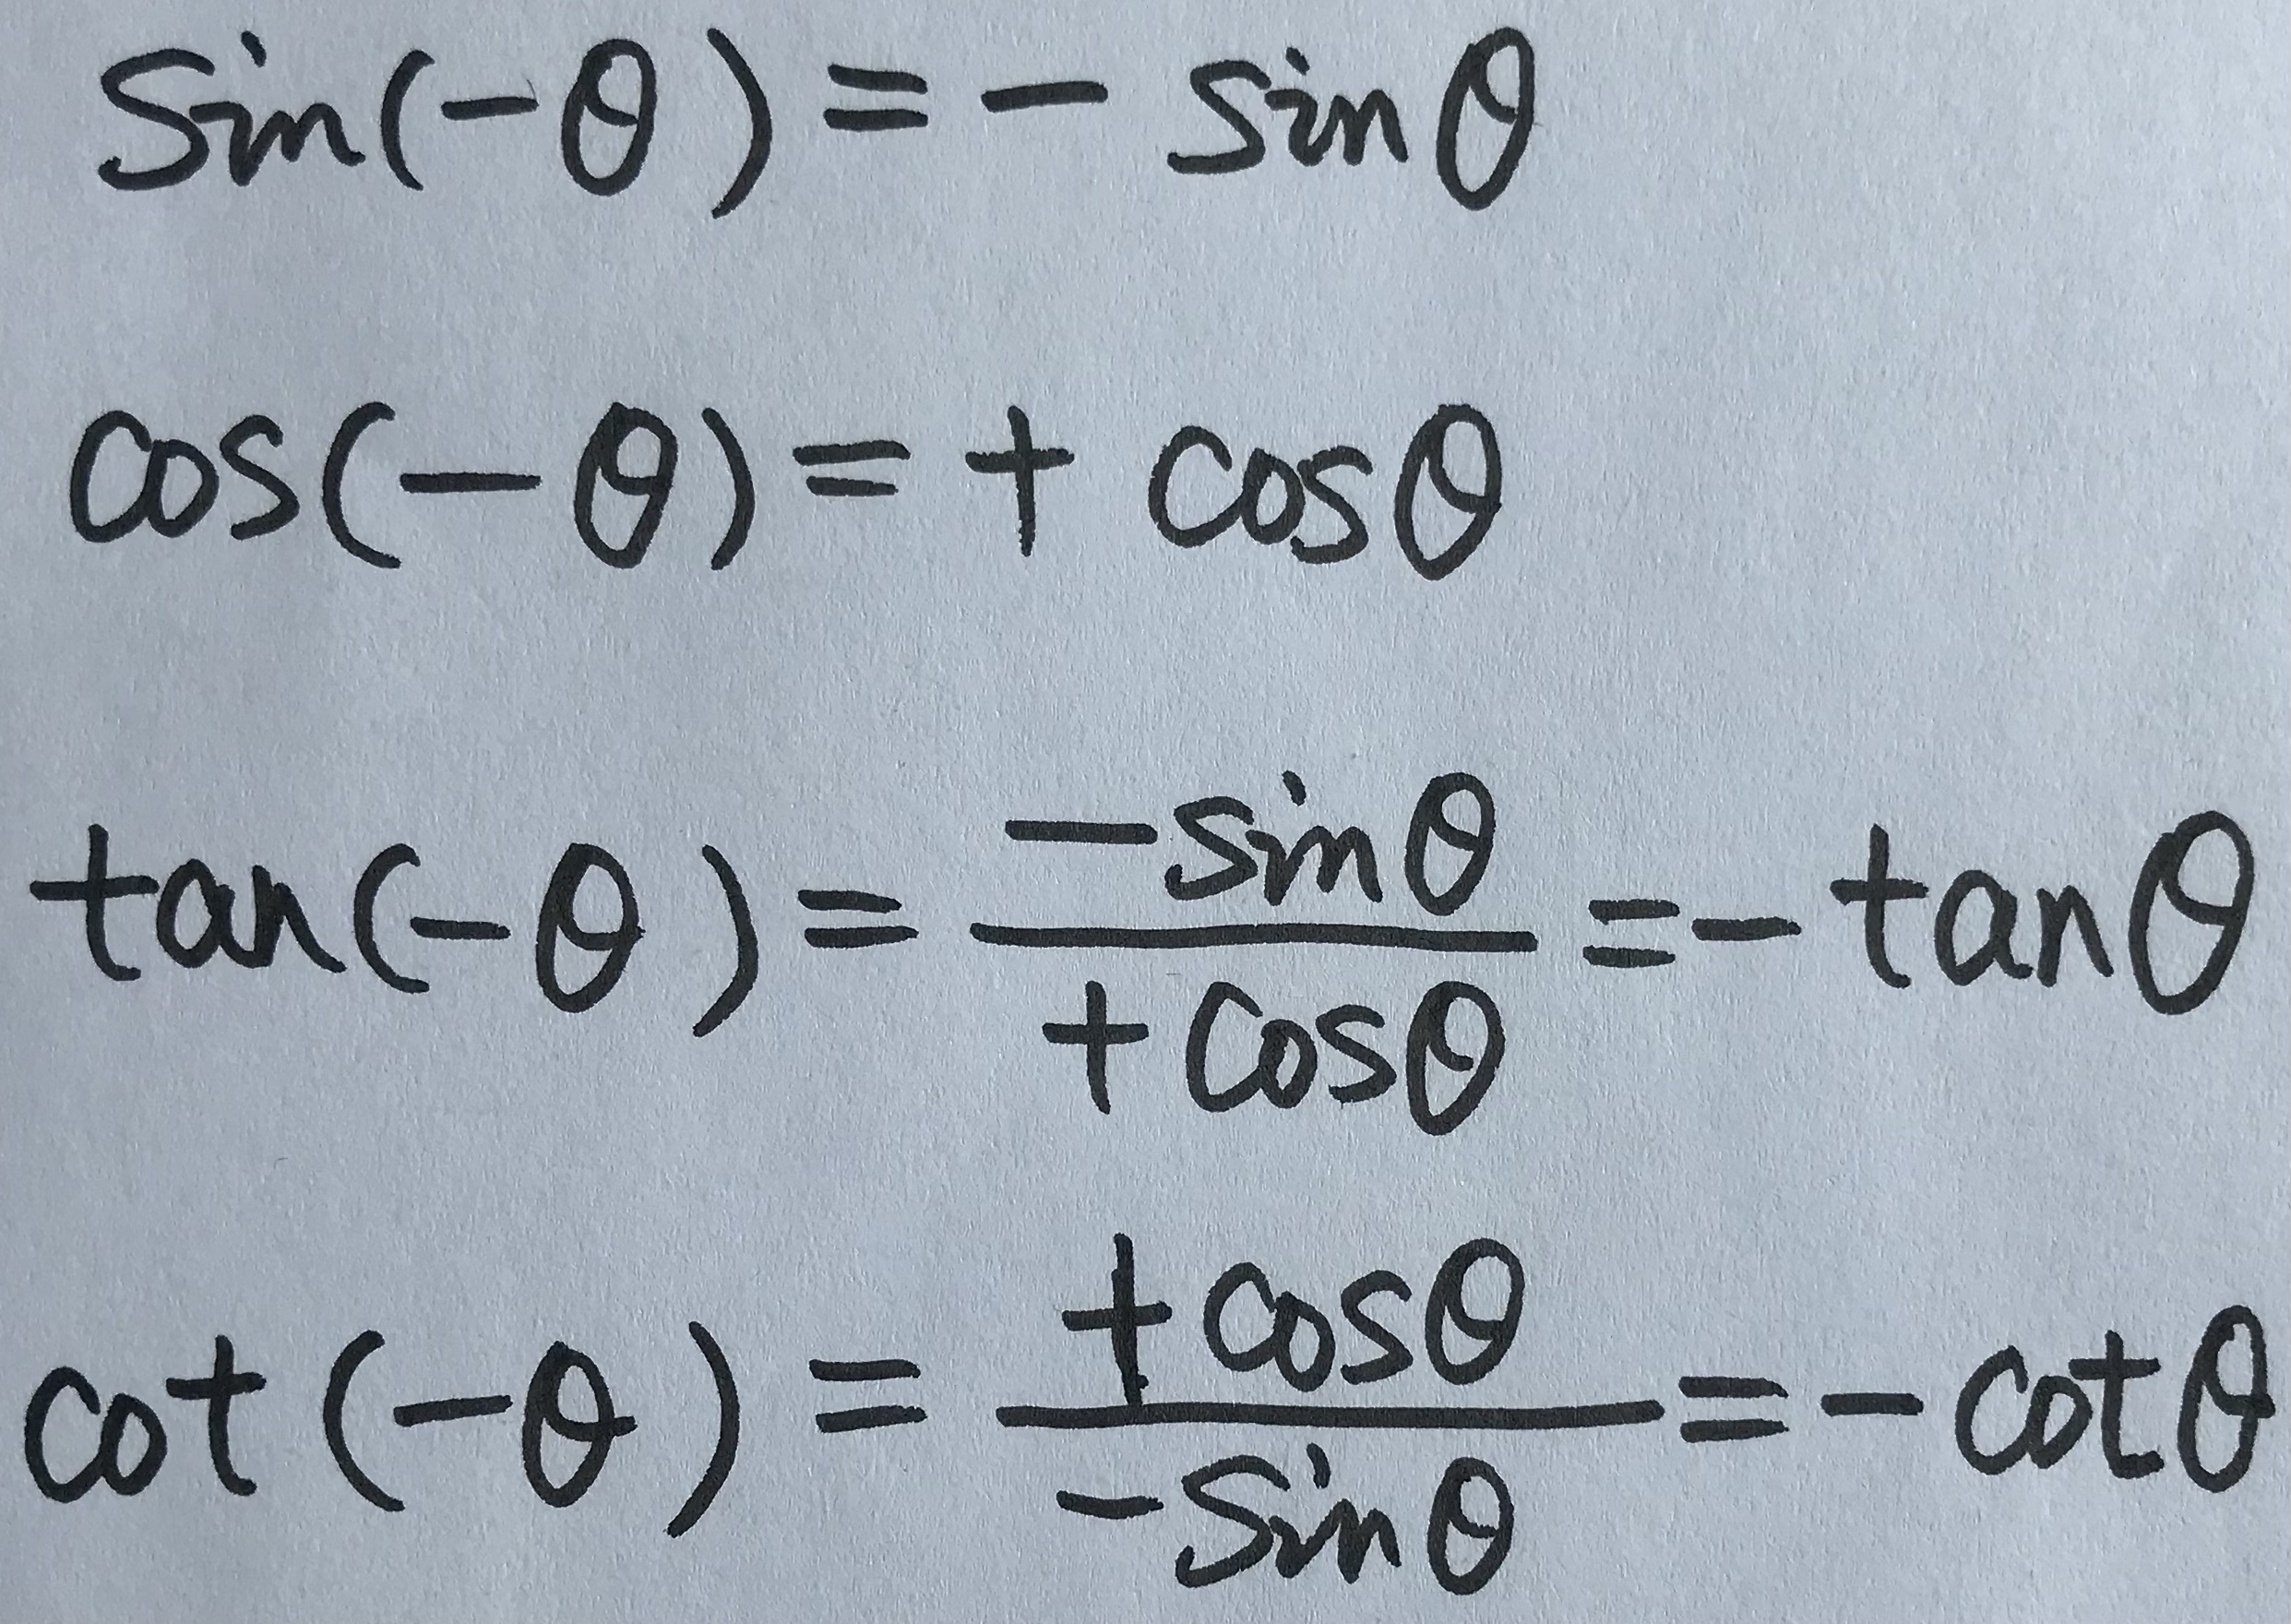 sin(-θ) = - sinθ
cos(-θ) = + cosθ
tan(-θ) = \frac{-sinθ}{+cosθ} = - tanθ
cot(-θ) = \frac{+cosθ}{-sinθ} = - cotθ